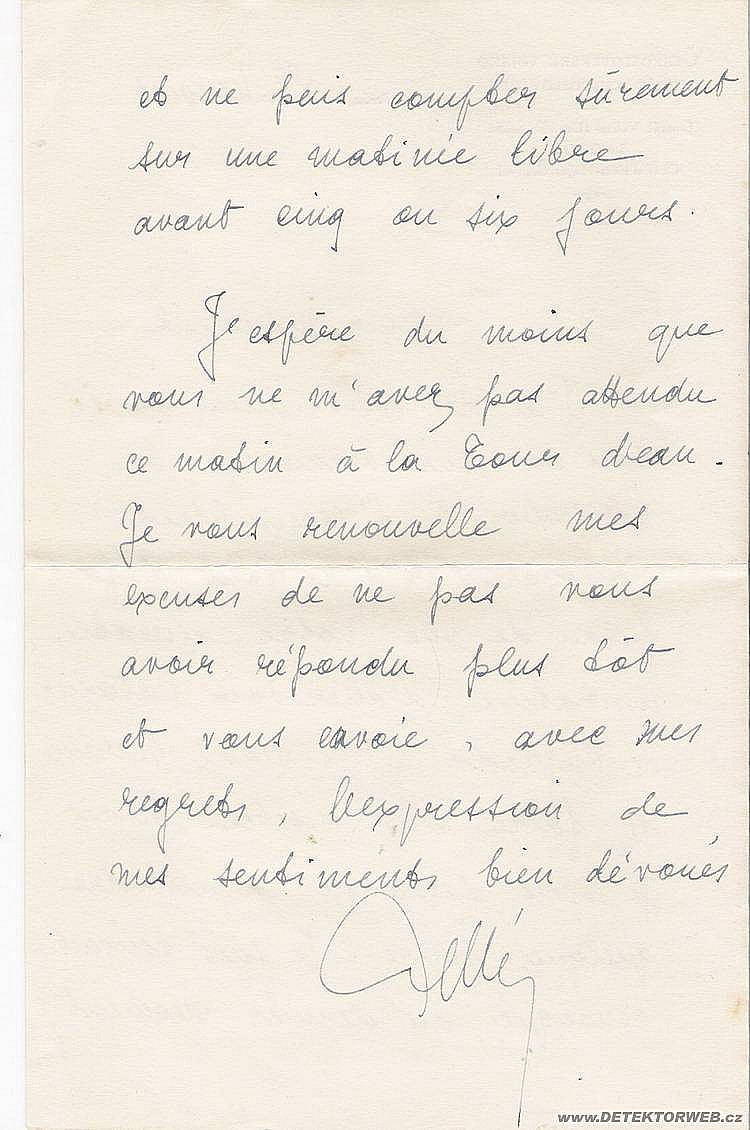 et ne puis compter sûrement
sur une matinée libre
avant cinq ou six jours.
J'espère du moins que
vous ne m'avez pas attendu
ce matin à la Tour d'eau.
Je vous renouvelle mes
excuses de ne pas vous
avoir répondu plus tôt
et vous envoie, avec mes
regrets, l'expression de
mes sentiments bien dévoués
www.DETEKTORWEB.cz